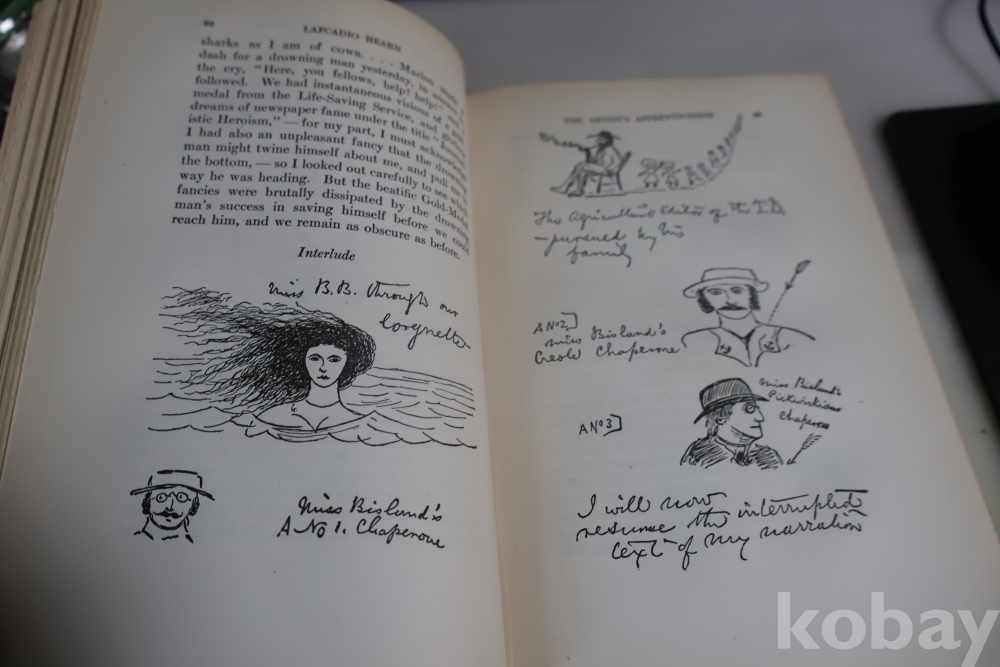 94
LAFCADIO HEARN
sharks as I am of cows. . . . Marion made
dash for a drowning man yesterday, in
the cry, "Here, you fellows, help! help!" and I
followed. We had instantaneous visions of a gold
medal from the Life-Saving Service, and
dreams of newspaper fame under the title "Journal-
istic Heroism," — for my part, I must acknowledge
I had also an unpleasant fancy that the drowning
man might twine himself about me, and pull me to
the bottom, — so I looked out carefully to see which
way he was heading. But the beatific Gold-Medal
fancies were brutally dissipated by the drowning
man's success in saving himself before we could
reach him, and we remain as obscure as before.
Interlude
Miss B.B. through our
lorgnette
Miss Bisland's
A No 1. Chaperone
THE ARTIST'S APPRENTICESHIP
95
The Agricultural Editor of the T.D.
— pursued by his
family
A No 2
Miss Bisland's
Creole Chaperone
Miss Bisland's
Pickwickian
Chaperone
A No 3
I will now
resume the interrupted
text of my narration
kobay